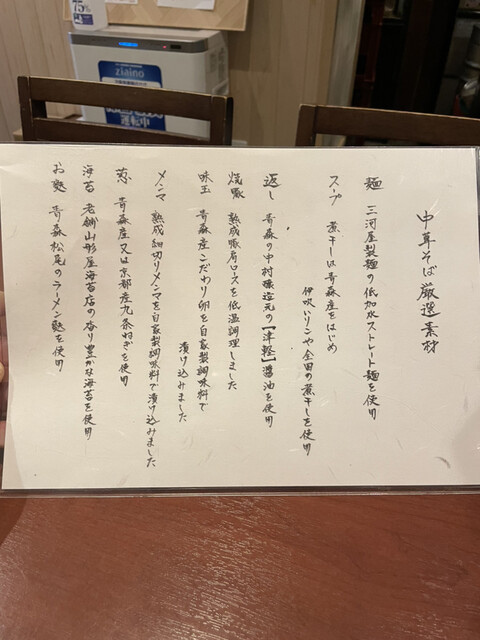 75%
ziaino
運転中
中華そば厳選素材
麺 三河屋製麺の低加水ストレート麺を使用
スープ 煮干しは青森産をはじめ
伊吹いりこや全国の煮干しを使用
返し 青森の中村醸造元の【津軽】醤油を使用
焼豚 熟成豚肩ロースを低温調理しました
味玉 青森産こだわり卵を自家製調味料で
漬け込みました
メンマ 熟成細切りメンマを自家製調味料で漬け込みました
葱 青森産又は京都産九条ねぎを使用
海苔 老舗山形屋海苔店の香り豊かな海苔を使用
お麩 青森松尾のラーメン麩を使用